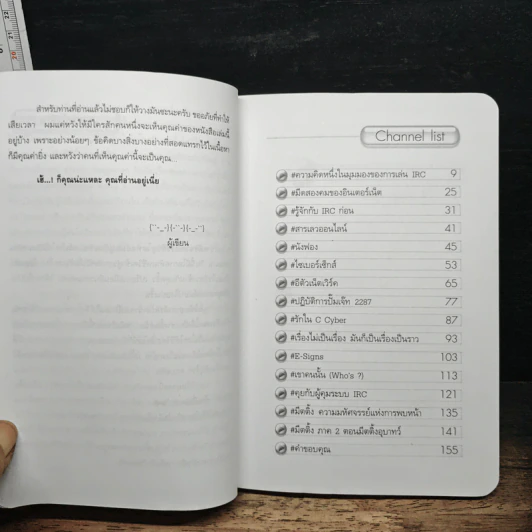 สำหรับท่านที่อ่านแล้วไม่ชอบก็ให้วางมันซะนะครับ ขออภัยที่ทำให้
เสียเวลา ผมแค่หวังให้มีใครสักคนหนึ่งจะเห็นคุณค่าของหนังสือเล่มนี้
อยู่บ้าง เพราะอย่างน้อยๆ ข้อคิดบางสิ่งบางอย่างที่สอดแทรกไว้ในเนื้อหา
ก็มีคุณค่ายิ่ง และหวังว่าคนที่เห็นคุณค่านี้จะเป็นคุณ
เฮ้...! ก็คุณน่ะแหละ คุณที่อ่านอยู่เนี่ย
(¨-_-)(-¨-)(-_-¨)
ผู้เขียน
Channel list
#ความคิดหนึ่งในมุมมองของการเล่น IRC 9
#มีดสองคมของอินเตอร์เน็ต 25
#รู้จักกับ IRC ก่อน 31
#สารเลวออนไลน์ 41
#นังฟอง 45
#ไซเบอร์เซ็กส์ 53
#อีตัวเน็ตเวิร์ค 65
#ปฏิบัติการปั๊มเจ๊ท 2287 77
#รักใน C Cyber 87
#เรื่องไม่เป็นเรื่อง มันก็เป็นเรื่องเป็นราว 93
#E-Signs 103
#เขาคนนั้น (Who's ?) 113
#คุยกับผู้คุมระบบ IRC 121
#มีตติ้ง ความมหัศจรรย์แห่งการพบหน้า 135
#มีตติ้ง ภาค 2 ตอนมีตติ้งอุบาทว์ 141
#คำขอบคุณ 155